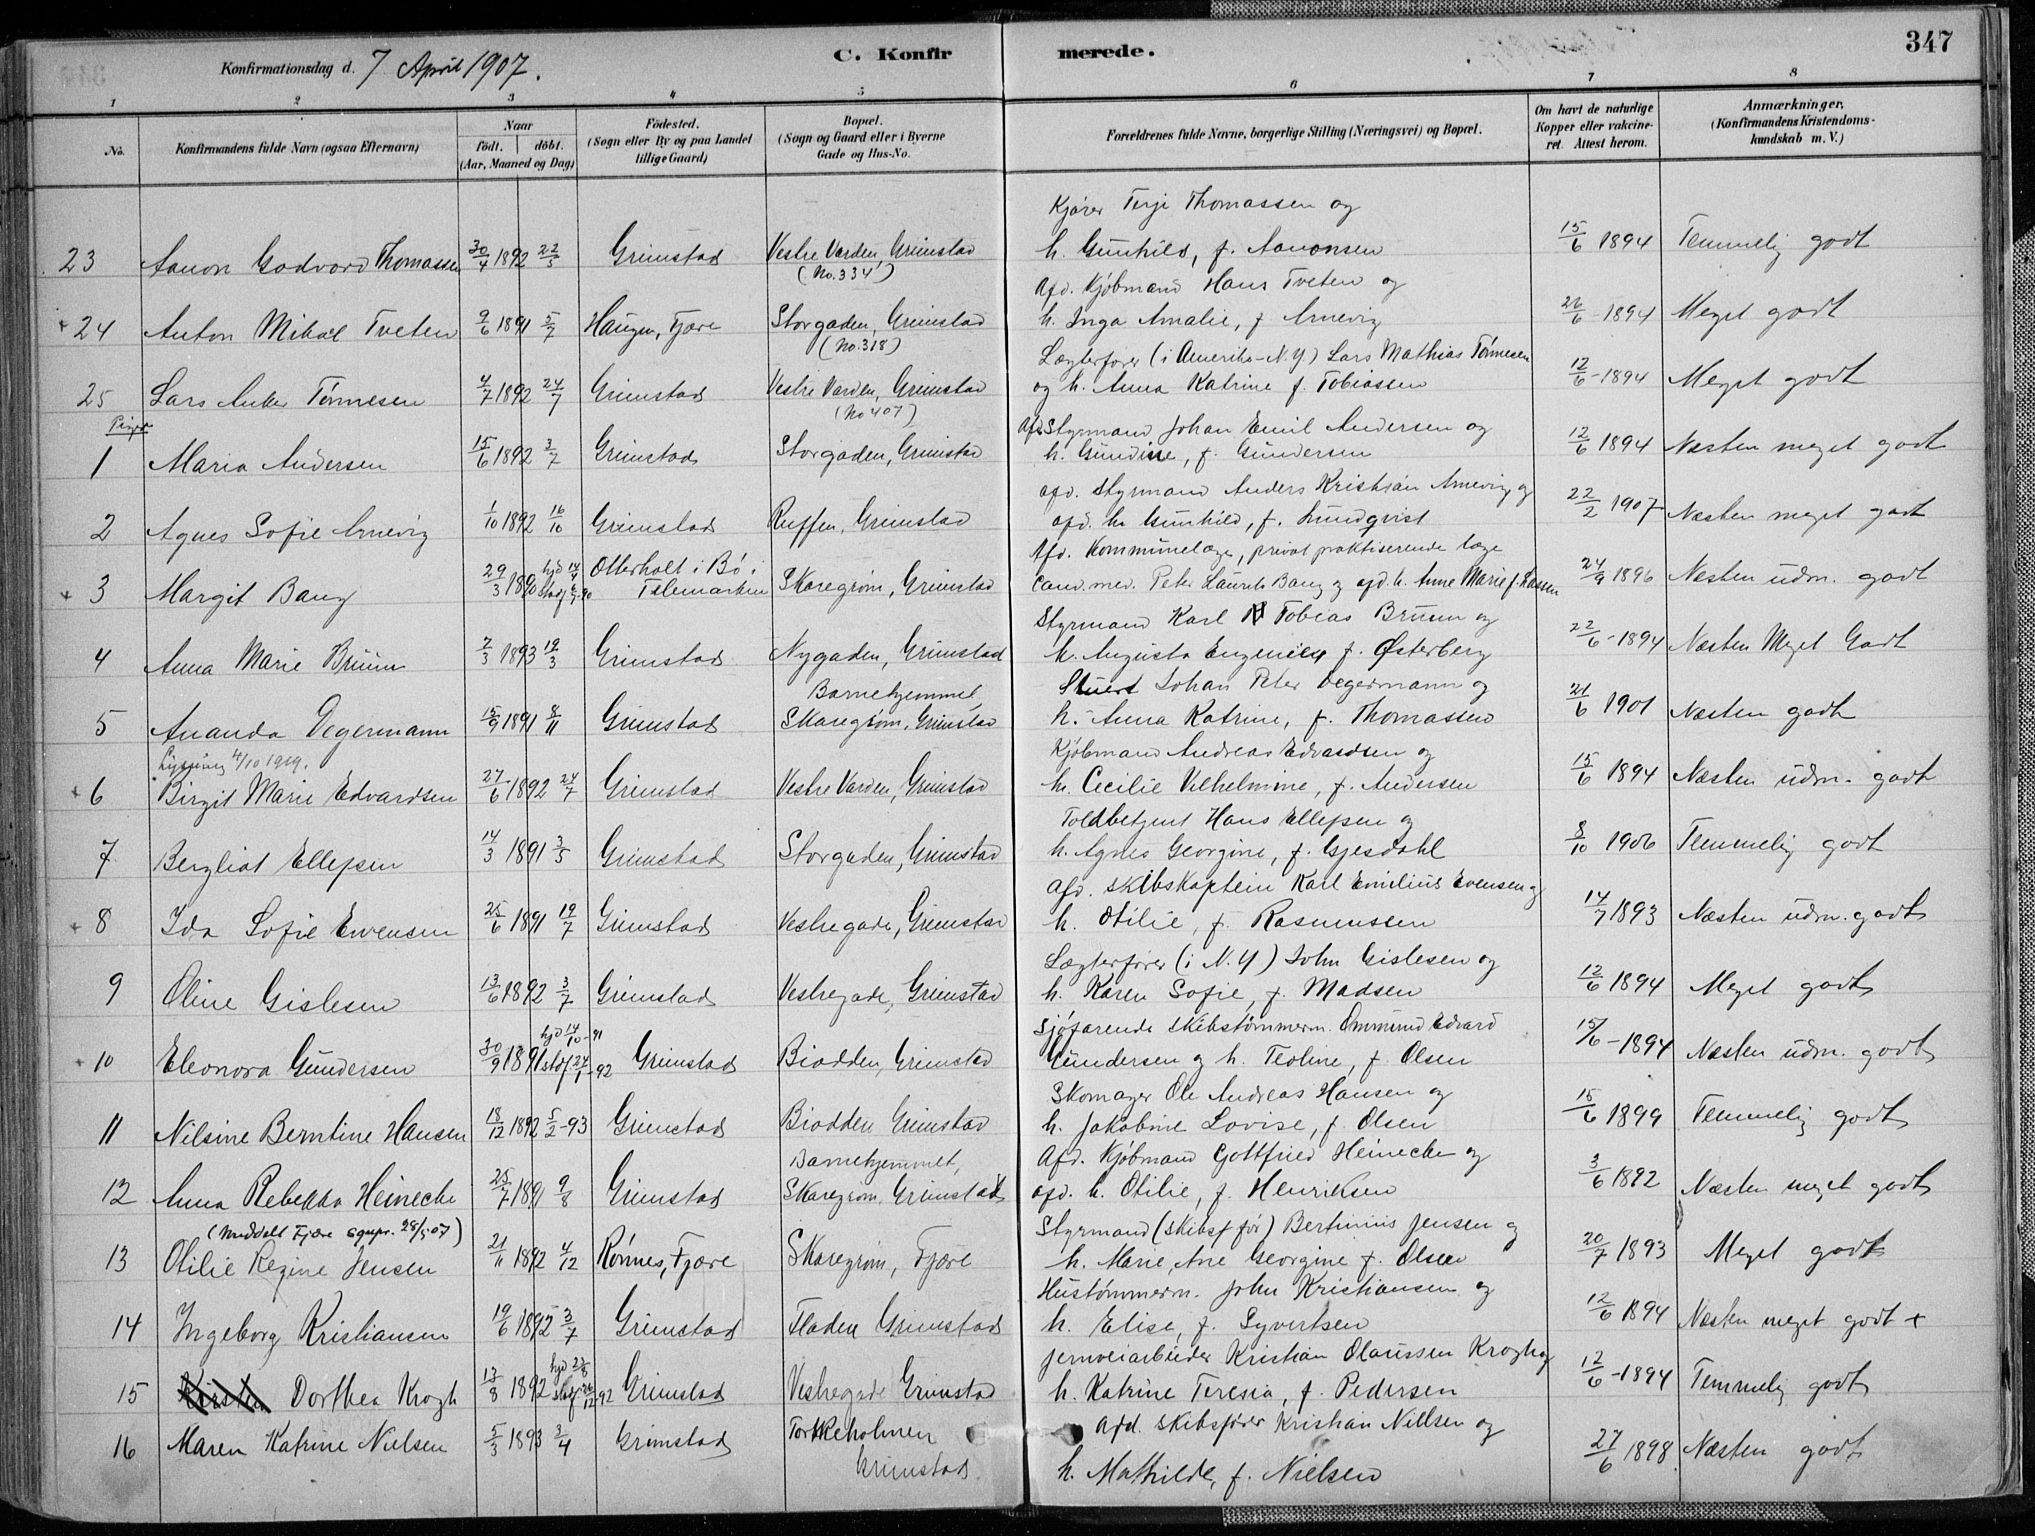 Konfirmationsdag d. 7 April 1907. C. Konfirmerede. 347
1 2 3 4 5 6 7 8
No. Konfirmandens fulde Navn (ogsaa Efternavn) Naar födt. döbt. (Aar, Maaned og Dag) Födested. (Sogn eller By og paa Landet tillige Gaard) Bopæl. (Sogn og Gaard eller i Byerne Gade og Hus-No. Forældrenes fulde Navne, borgerlige Stilling (Næringsvei) og Bopæl. Om havt de naturlige Kopper eller vakcineret. Attest herom. Anmærkninger. (Konfirmandens Kristendomskundskab m. V.)
Kjører Terje Thomassen og
23 Aanon Godvord Thomassen 30/4 1892 22/5 Grimstad Vestre Varden, Grimstad h. Gunhild, f. Aanonsen 15/6 1894 Temmelig godt
(No. 334)
Afd. Kjøbmand Hans Tveten og
24 Anton Mikal Tveten 9/6 1891 5/7 Haugen, Fjære Storgaden, Grimstad h. Inga Amalie, f. Arnevig 26/6 1894 Meget godt
(No. 318)
Lægterfører (i Amerika-N.Y.) Lars Mathias Tønnesen
25 Lars Anker Tønnesen 4/7 1892 24/7 Grimstad Vestre Varden, Grimstad og h. Anna Katrine f. Tobiassen 12/6-1894 Meget godt
(No 407)
Piger
Afd. Styrmand Johan Emil Andersen og
1 Maria Andersen 15/6 1892 3/7 Grimstad Storgaden, Grimstad h. Gundine, f. Gundersen 12/6 1894 Næsten meget godt
afd. Styrmand Anders Kristian Arnevig og
2 Agnes Sofie Arnevig 1/10 1892 16/10 Grimstad Ruffen, Grimstad afd. h. Gunhild, f. Lundqvist 22/2 1907 Næsten meget godt
Afd. Kommunelæge, privat praktiserende læge
3 Margit Bang 29/3 1890 Otterholt i Bø i Telemarken Skaregrøm, Grimstad cand. med. Peter Laurits Bang og afd. h. Anne Marie f. Lassen 24/9 1896 Næsten udm. godt
Styrmand Karl Tobias Bruun og
4 Anna Marie Bruun 7/3 1893 19/3 Grimstad Nygaden, Grimstad h. Augusta Eugenie f. Østerberg 22/6-1894 Næsten Meget Godt
Barnehjemmet Stuert Johan Peter Degermann og
5 Amanda Degermann 15/9 1891 8/11 Grimstad Skaregrøm, Grimstad h. Anna Katrine, f. Thomassen 21/6 1901 Næsten godt
Lysning 4/10 1919. Kjøbmand Andreas Edvardsen og
6 Birgit Marie Edvardsen 27/6 1892 24/7 Grimstad Vestre Varden, Grimstad h. Cecilie Vilhelmine, f. Andersen 15/6 1894 Næsten udm. godt
Toldbetjent Hans Ellefsen og
7 Bergliot Ellefsen 14/3 1891 3/5 Grimstad Storgaden, Grimstad h. Agnes Georgine, f. Gjesdahl 8/10 1906 Temmelig godt
Afd. skibskaptein Karl Emilius Evensen og
8 Ida Sofie Evensen 25/6 1891 19/7 Grimstad Vestregade, Grimstad h. Otilie, f. Rasmussen 14/7 1893 Næsten udm. godt
Lægterfører (i N.Y) John Gislesen og
9 Oline Gislesen 13/6 1892 3/7 Grimstad Vestregade, Grimstad h. Karen Sofie, f. Madsen 12/6 1894 Meget godt
Sjøfarende skibstømmerm. Ommund Edvard
10 Eleonora Gundersen 30/9 1891 hjd 14/10-91 stadf. 24/1-92 Grimstad Biodden, Grimstad Gundersen og h. Teoline, f. Olsen 15/6-1894 Næsten udm. godt
Skomager Ole Andreas Hansen og
11 Nilsine Berntine Hansen 18/12 1892 5/2-93 Grimstad Biodden Grimstad h. Jakobine Lovise, f. Olsen 15/6 1899 Temmelig godt
Barnehjemmet, Afd. Kjøbmand Gottfried Heinecke og
12 Anna Rebekka Heinecke 25/7 1891 9/8 Grimstad Skaregrøm, Grimstad afd. h. Otilie, f. Henriksen 3/6 1892 Næsten meget godt
(Meddelt Fjære sgnpr. 28/5 07) Styrmand (skibsf. før) Bertinius Jensen og
13 Otilie Regine Jensen 21/11 1892 4/12 Rønnes, Fjære Skaregrøm, Fjære h. Marie Ane Georgine f. Olsen 20/7 1893 Meget godt
Hustømmerm. John Kristiansen og
14 Ingeborg Kristiansen 19/6 1892 3/7 Grimstad Fladen Grimstad h. Elise, f. Syvertsen 12/6 1894 Næsten meget godt +
jernveiarbeider Kristian Olaussen Krogh og
15 Kirsten Dorthea Krogh 13/8 1892 Grimstad Vestregade Grimstad h. Katrine Teresia, f. Pedersen 12/6-1894 Temmelig godt
Afd. skibsfører Kristian Nielsen og
16 Maren Katrine Nielsen 5/3 1893 3/4 Grimstad Torskeholmen Grimstad h. Mathilde, f. Nielsen 27/6 1898 Næsten godt